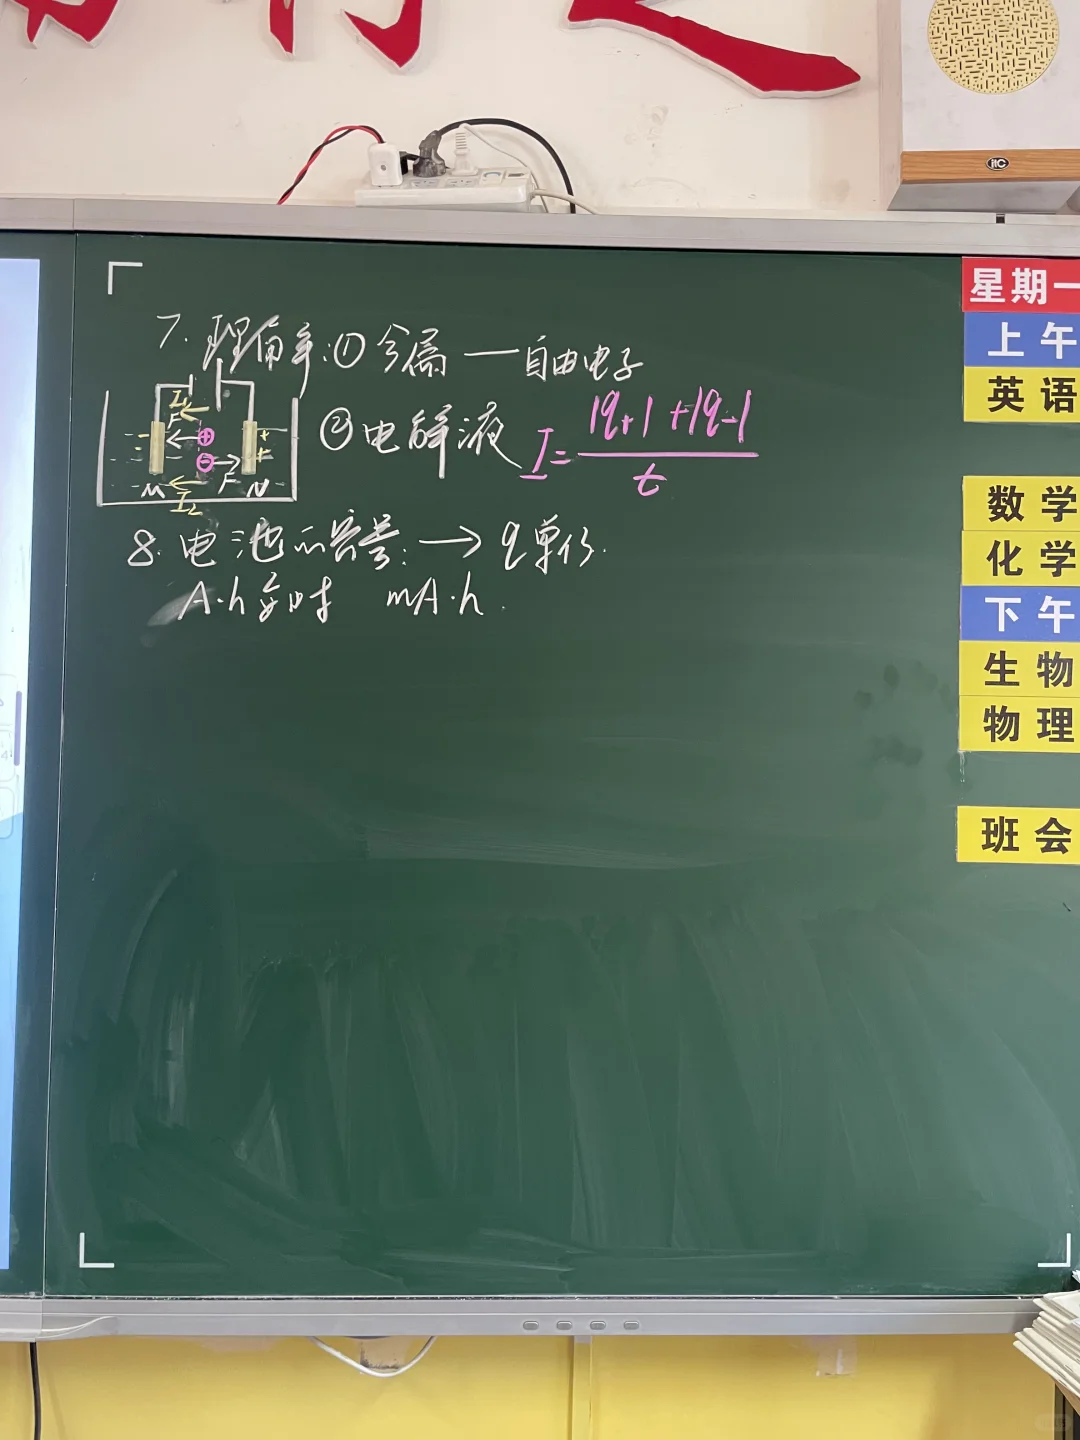 itc
7. 理解:① 金属 — 自由电子
② 电解液 I = |q+|+|q-| / t
I₁
F
⊕
⊖
M I₂ F N
8. 电池的容量: → q单位.
A·h 安时 mA·h.
星期一
上午
英语
数学
化学
下午
生物
物理
班会